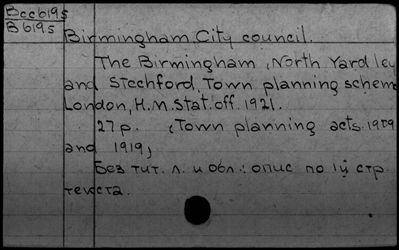 Bccb195
Bb195
Birmingham. City council.
The Birmingham, North Yardley
and Stechford. Town planning scheme
London, H.M. Stat. off. 1921.
27 p. (Town planning acts. 1909
and 1919)
Без тит. л. и обл.: опис по 1й стр
текста.